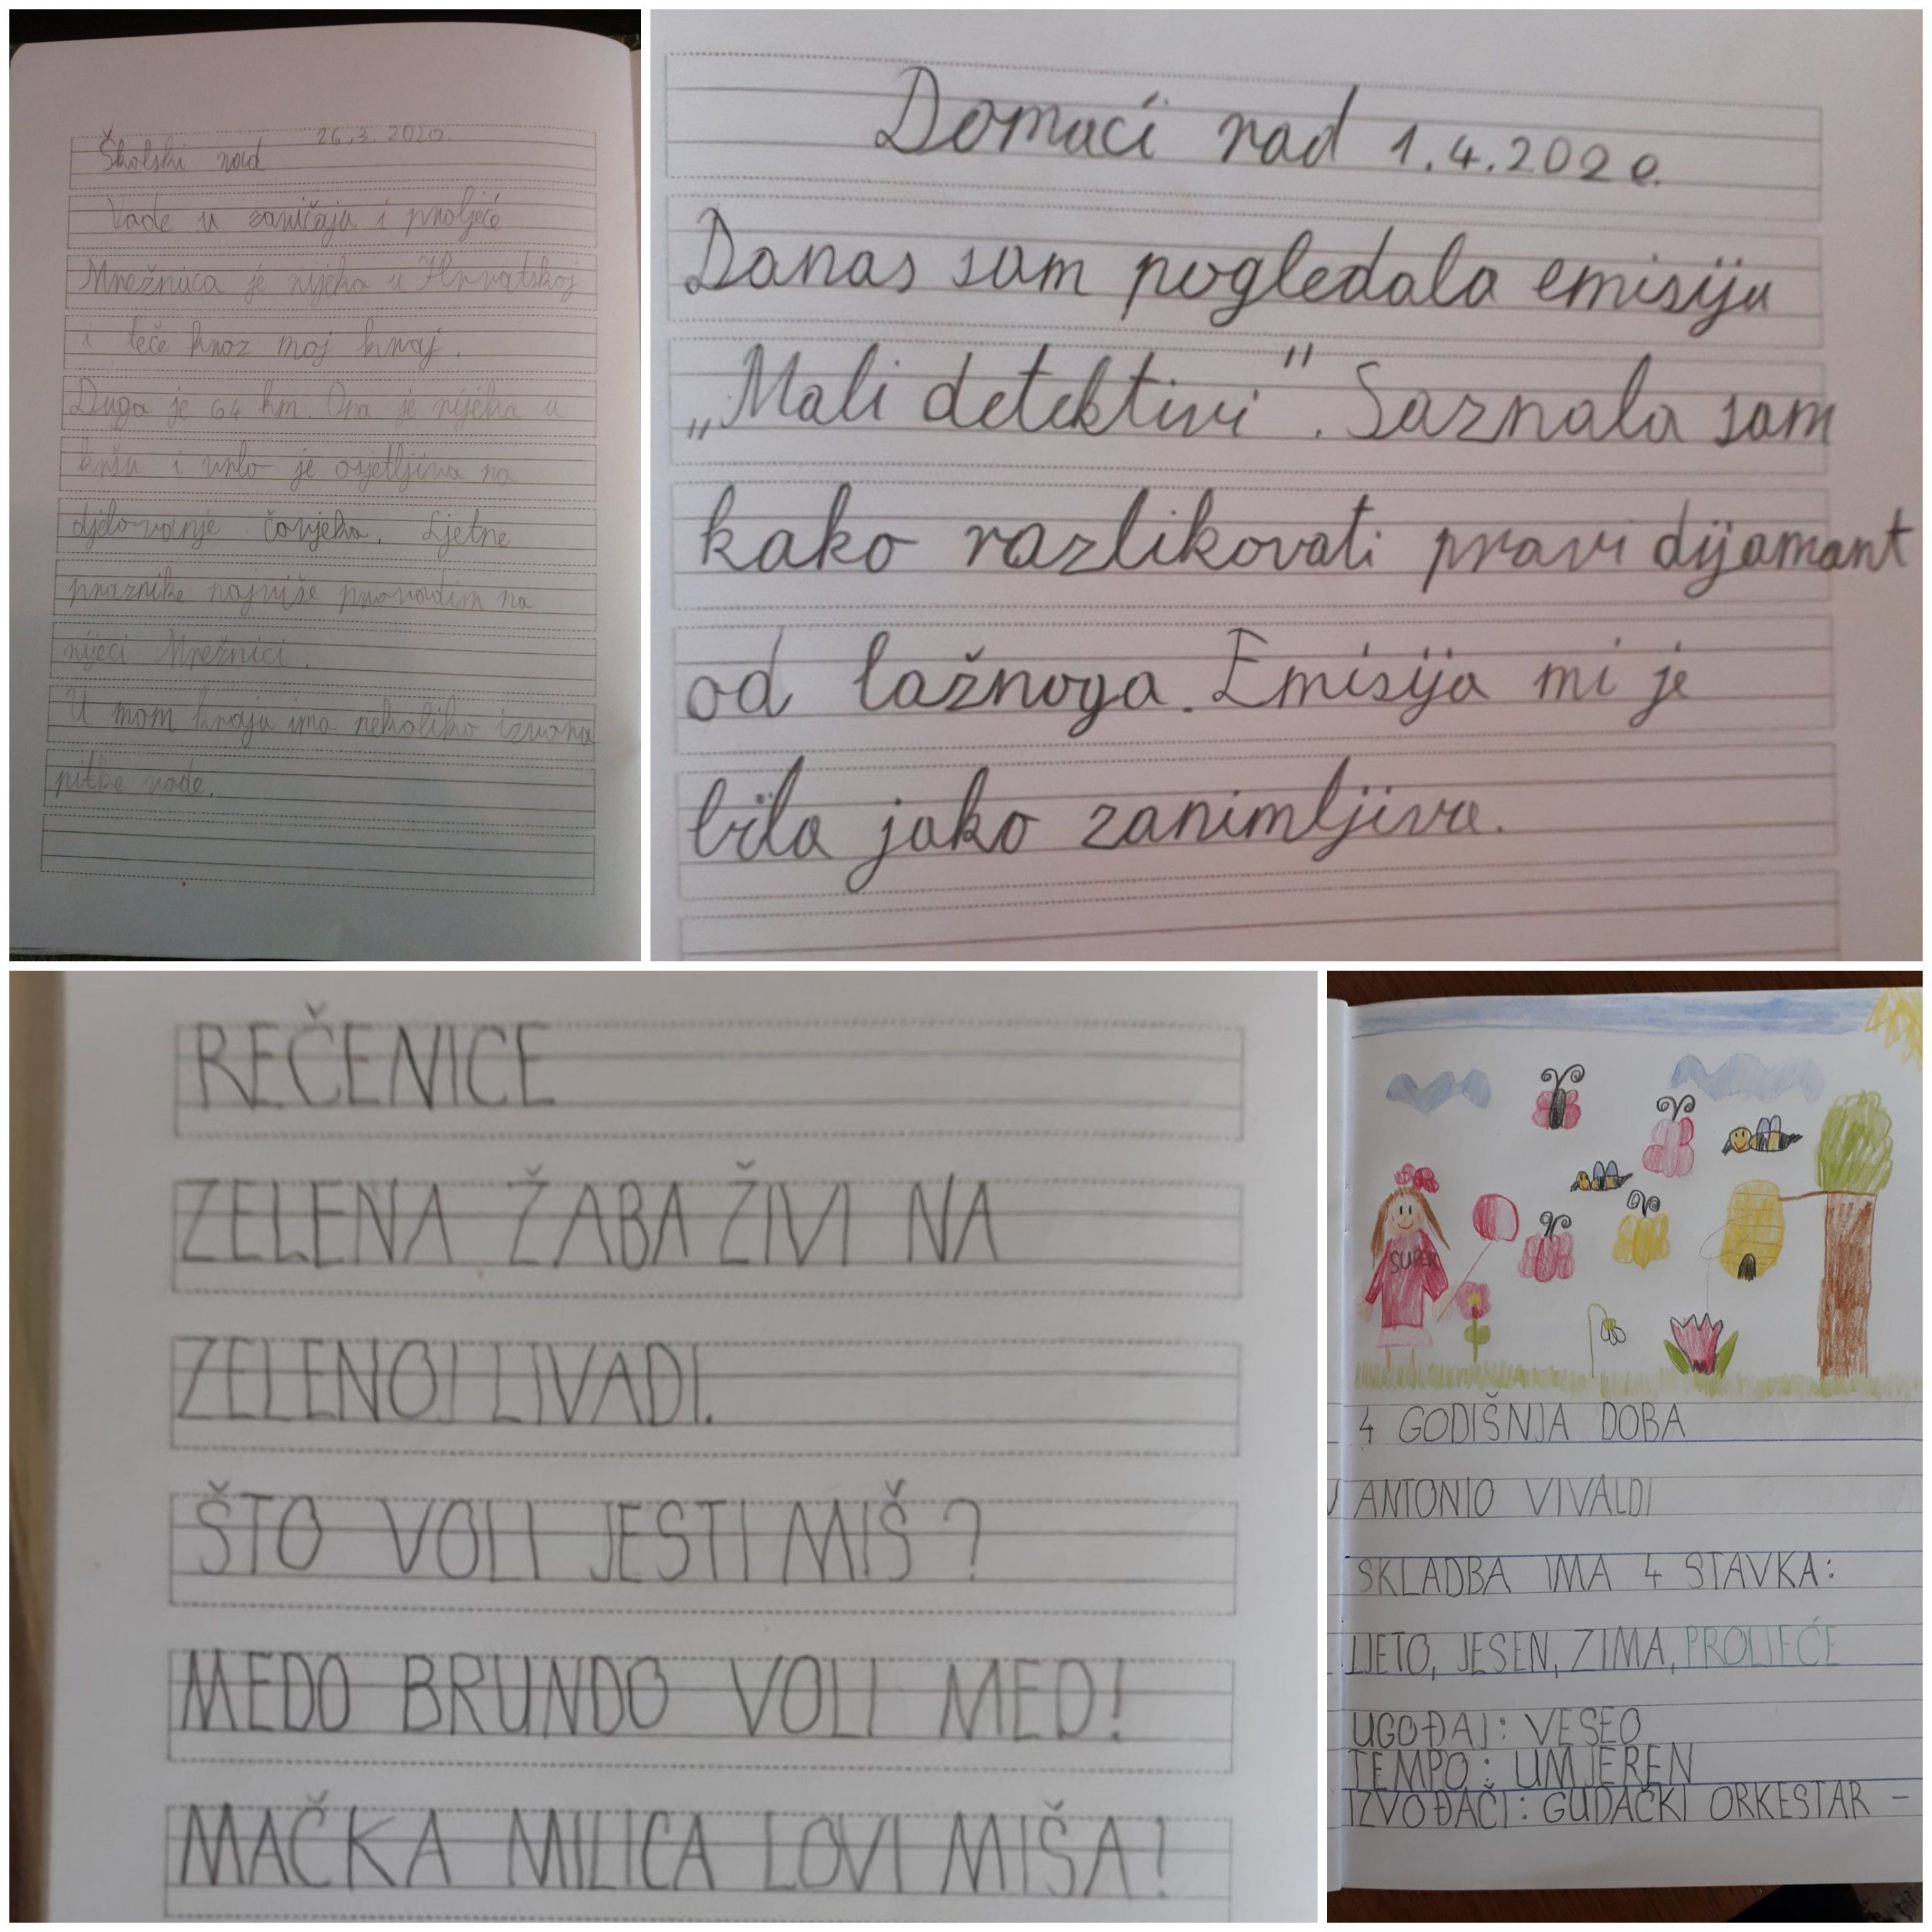 Školski rad 26.3.2020.
Vode u zavičaju i proljeće
Mrežnica je rijeka u Hrvatskoj
i teče kroz moj kraj.
Duga je 64 km. Ona je rijeka u
kršu i vrlo je osjetljiva na
djelovanje čovjeka. Ljetne
praznike najviše provodim na
rijeci Mrežnici.
U mom kraju ima nekoliko izvora
pitke vode.
Domaći rad 1.4.2020.
Danas sam pogledala emisiju
„Mali detektivi". Saznala sam
kako razlikovati pravi dijamant
od lažnoga. Emisija mi je
bila jako zanimljiva.
REČENICE
ZELENA ŽABA ŽIVI NA
ZELENOJ LIVADI.
ŠTO VOLI JESTI MIŠ?
MEDO BRUNDO VOLI MED!
MAČKA MILICA LOVI MIŠA!
SUPER
4 GODIŠNJA DOBA
ANTONIO VIVALDI
SKLADBA IMA 4 STAVKA:
LJETO, JESEN, ZIMA, PROLJEĆE
UGOĐAJ: VESEO
TEMPO: UMJEREN
IZVOĐAČI: GUDAČKI ORKESTAR -